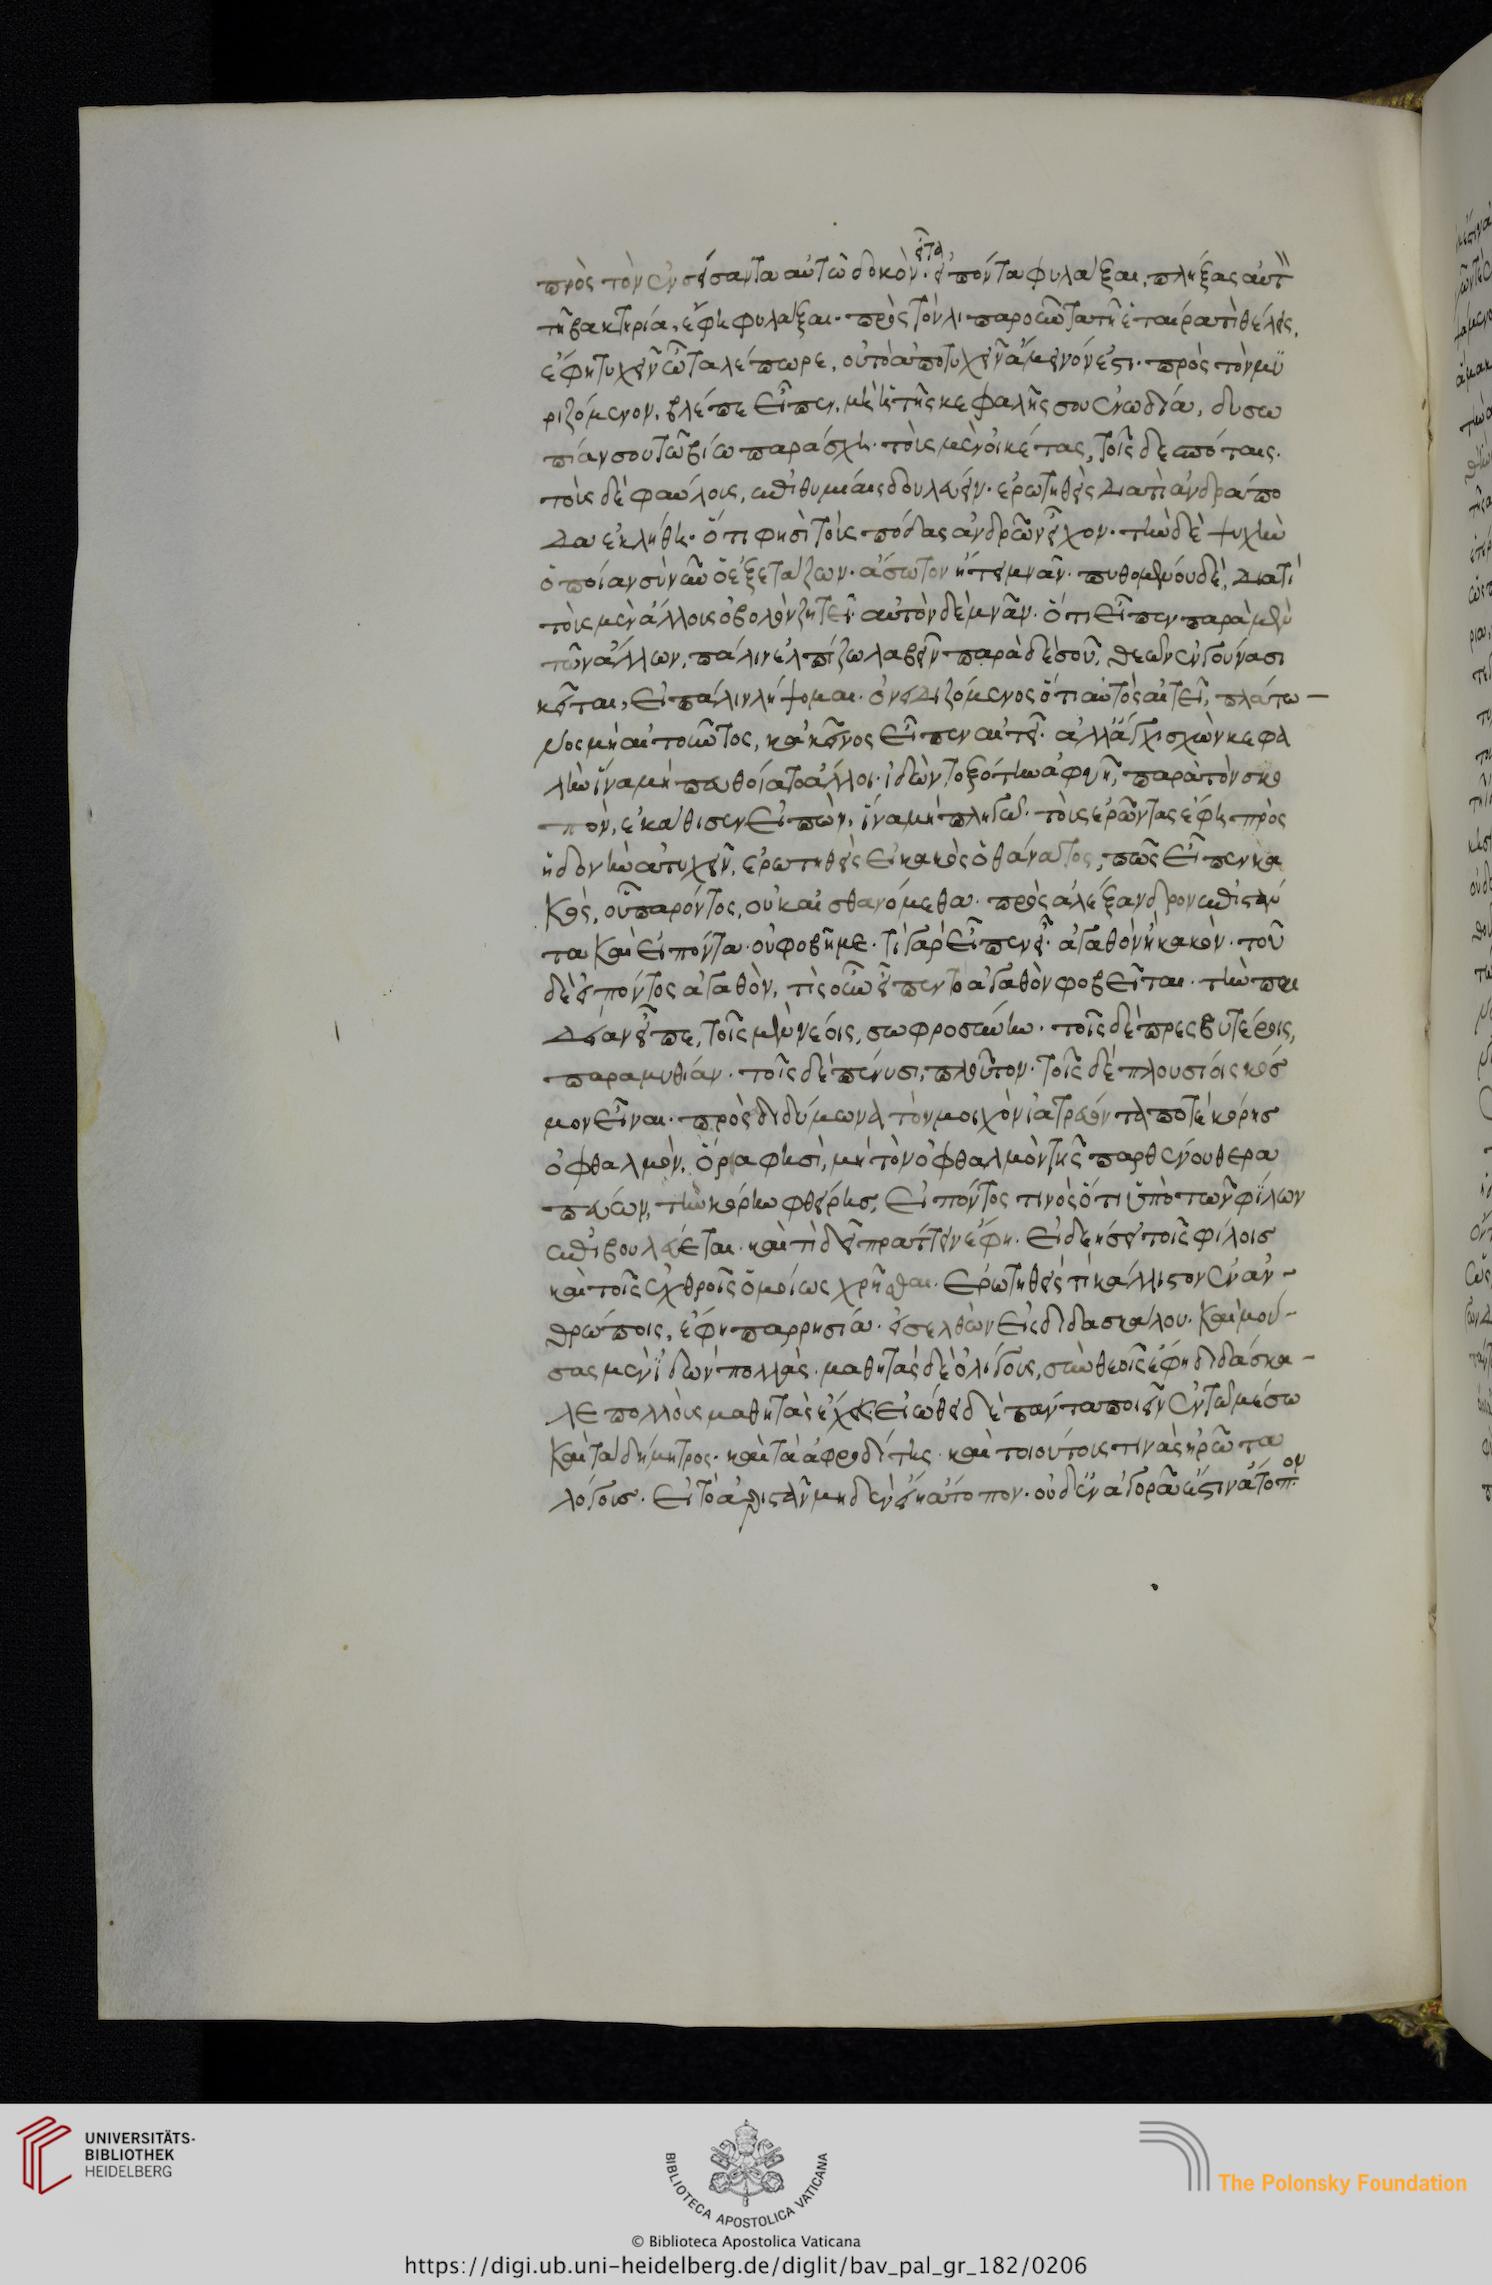 πρὸς τὸν ἐνσείσαντα αὐτῷ δοκὸν· εἶτα εἰπόντα φυλάξαι, πλήξας αὐτὸν
τῆ βακτηρία, ἔφη φύλαξαι· πρὸς τὸν λιπαροῦντα τῆ ἑταίρα τί θέλεις,
ἔφη τυχεῖν ὦ ταλαίπωρε, οὗ τὸ ἀποτυχεῖν ἄμεινόν ἐστι· πρὸς τὸν μυ
ριζόμενον, βλέπε εἶπεν, μὴ ἡ τῆς κεφαλῆς σου ἐνωδία, δυσω
δίαν σου τῶ βίω παράσχη· τοὺς μὲν οἰκέτας, τοῖς δεσπόταις·
τοὺς δὲ φαύλους, ἐπιθυμίαις δουλεύειν· ἐρωτηθεὶς διατί ἀνδράπο
δα ἐκλήθη· ὅτι φησὶ τοὺς πόδας ἀνδρῶν εἶχον· τὴν δὲ ψυχὴν
ὁποίαν σὺ νῦν ὁ ἐξετάζων· ἄσωτον ἤτει μνᾶν· πυθομένου δὲ, διατί
τοὺς μὲν ἄλλους ὀβολὸν ζητεῖ· αὐτὸν δὲ μνᾶν· ὅτι εἶπεν παρὰ μὲν
τῶν ἄλλων, πάλιν ἐλπίζω λαβεῖν παρὰ δὲ σοῦ, θεῶν ἐν γούνασι
κεῖται, εἰ πάλιν λήψομαι· ὀνειδιζόμενος ὅτι αὐτὸς αἰτεῖ, πλάτω–
νος μὴ αἰτοῦντος, κἀκεῖνος εἶπεν αἰτεῖ· ἀλλ' ἄγχι σχὼν κεφα
λὴν ἵνα μὴ πευθοίατο ἄλλοι· ἰδὼν τοξότην ἀφυῆ, παρὰ τὸν σκο
πὸν, ἐκάθισεν εἰπὼν, ἵνα μὴ πληγῶ· τοὺς ἐρῶντας ἔφη πρὸς
ἡδονὴν ἀτυχεῖν, ἐρωτηθεὶς εἰ κακὸς ὁ θάνατος, πῶς εἶπεν κα
κὸς, οὗ παρόντος, οὐκ αἰσθανόμεθα· πρὸς ἀλέξανδρον ἐπιστάν
τα καὶ εἰπόντα· οὐ φοβῆ με· τί γὰρ εἶπεν εἶ· ἀγαθὸν ἢ κακὸν· τοῦ
δὲ εἰπόντος ἀγαθὸν, τίς οὖν εἶπεν τὸ ἀγαθὸν φοβεῖται· τὴν παι
δείαν εἶπε, τοῖς μὲν νέοις, σωφροσύνην· τοῖς δὲ πρεσβυτέροις,
παραμυθίαν· τοῖς δὲ πένησι, πλοῦτον· τοῖς δὲ πλουσίοις κόσ
μον εἶναι· πρὸς διδύμωνα τὸν μοιχὸν ἰατρεύοντα ποτὲ κόρης
ὀφθαλμὸν, ὅρα φησὶ, μὴ τὸν ὀφθαλμὸν τῆς παρθένου θερα
πεύων, τὴν κόρην φθείρης, εἰπόντος τινὸς ὅτι ὑπὸ τῶν φίλων
ἐπιβουλεύεται· καὶ τί δεῖ πράττειν ἔφη· εἰ δεήσει τοῖς φίλοις
καὶ τοῖς ἐχθροῖς ὁμοίως χρῆσθαι· ἐρωτηθεὶς τί κάλλιστον ἐν ἀν–
θρώποις, ἔφη παρρησία· εἰσελθὼν εἰς διδασκάλου· καὶ μού–
σας μὲν ἰδὼν πολλὰς· μαθητὰς δὲ ὀλίγους, σὺν θεοῖς ἔφη διδάσκα–
λε πολλοὺς μαθητὰς ἔχεις· εἰώθει δὲ πάντα ποιεῖν ἐν τῶ μέσω
καὶ τὰ δήμητρος· καὶ τὰ ἀφροδίτης· καὶ τοιούτους τινὰς ἠρώτα
λόγους· εἰ τὸ ἀριστᾶν μηδέν εἴη ἄτοπον· οὐδ' ἐν ἀγορᾶ ἐστιν ἄτοπον·
UNIVERSITÄTS-
BIBLIOTHEK
HEIDELBERG
BIBLIOTECA APOSTOLICA VATICANA
The Polonsky Foundation
© Biblioteca Apostolica Vaticana
https://digi.ub.uni-heidelberg.de/diglit/bav_pal_gr_182/0206